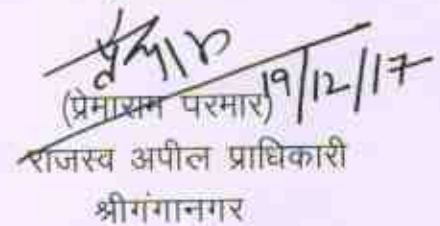 19/12/17
(प्रेमाराम परमार)
राजस्व अपील प्राधिकारी
श्रीगंगानगर